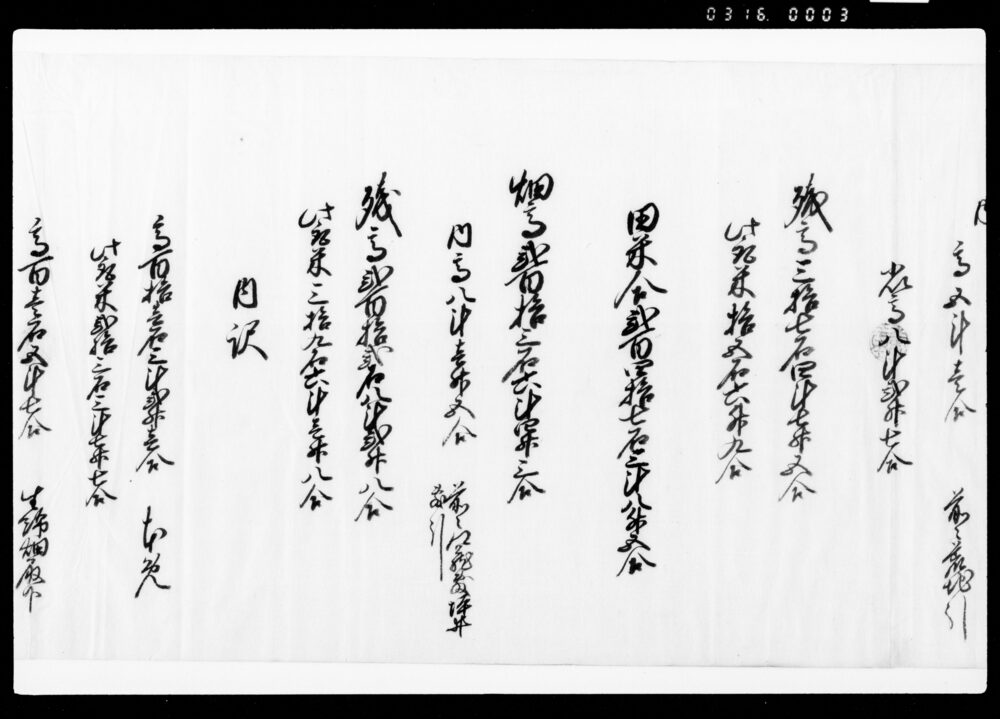 0316. 0003
内
高五斗壱合 前々荒地引
小以高八斗弐升七合
残高三拾七石四斗七升五合
此取米拾五石六升九合
田米合弐百四拾七石三斗八升五合
畑高弐百拾三石六斗四升三合
内高八斗壱升五合 前々
引
残高弐百拾弐石八斗弐升八合
此取米三拾九石六斗三升八合
内訳
高百拾壱石三斗弐升壱合 本免
此取米弐拾三石三斗七升七合
高百壱石五斗七合 畑